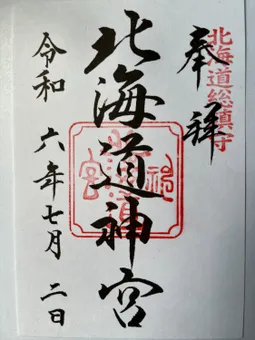 北海道総鎮守
奉拝
北海道神宮
令和六年七月二日